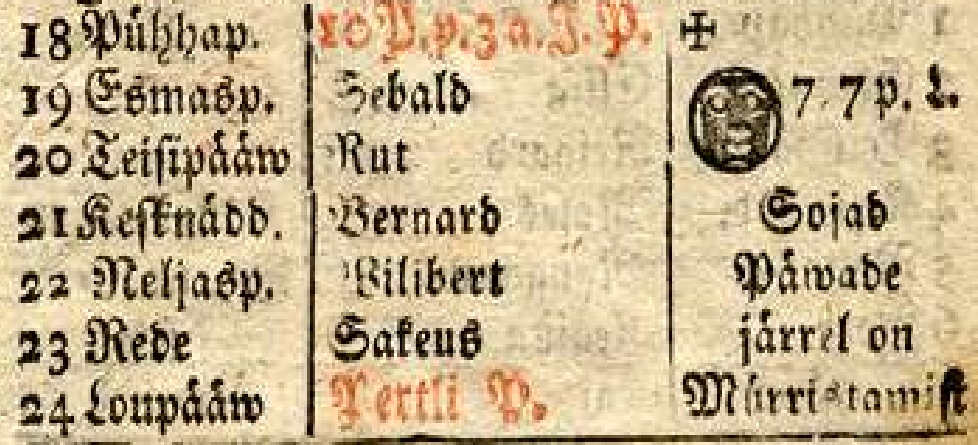 18 Pühhap. 10 P. p. 3 a. J. P. ✠
19 Esmasp. Sebald 7. 7 p. L.
20 Teisipääw Rut
21 Kesknädd. Bernard Sojad
22 Neljasp. Wilibert Päwade
23 Rede Sakeus järrel on
24 Loupääw Pertli P. Mürristamist